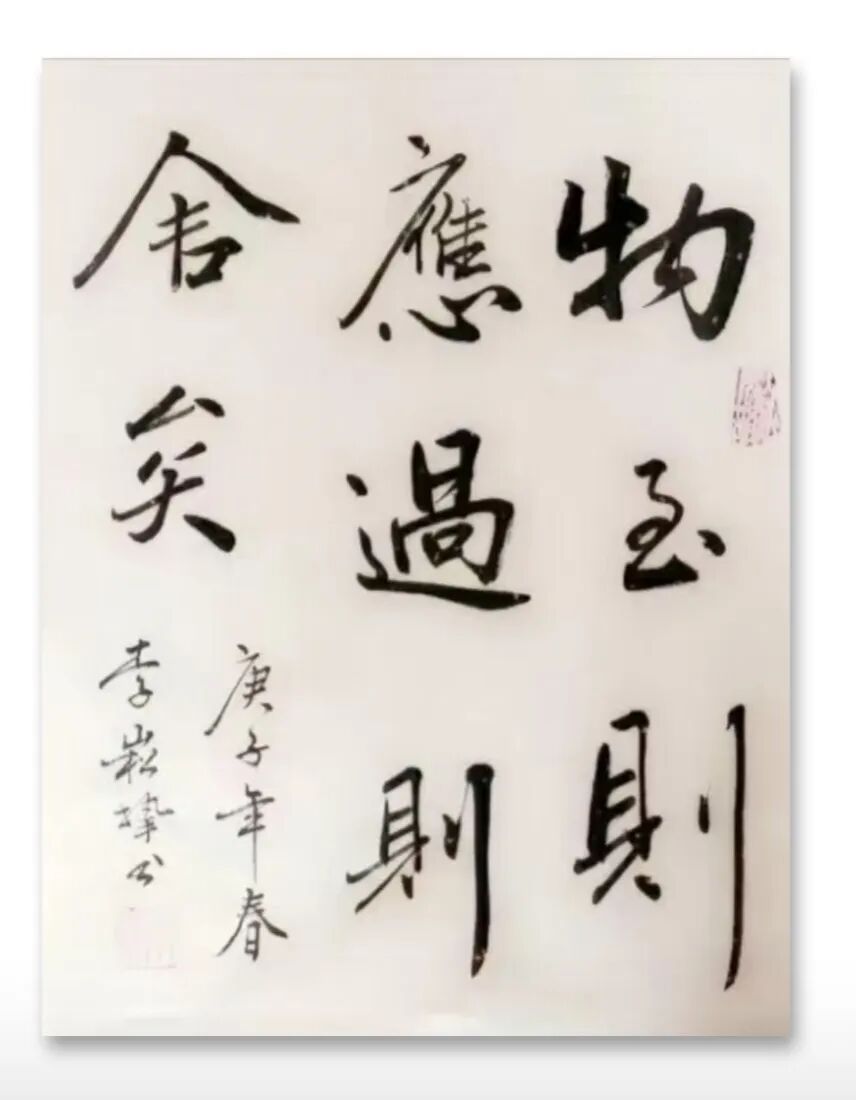 物至則
應過則
舍矣
庚子年春
李崧㙯书